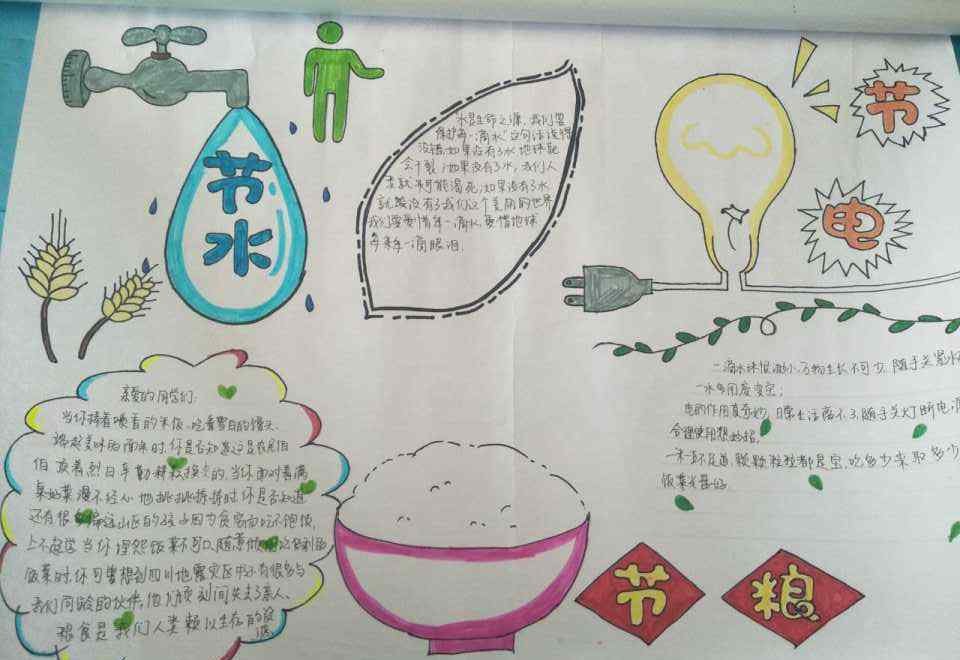 节水
水是生命之源,我们要
保护每一滴水"这句话说得
没错,如果没有了水,地球就
会干裂;如果没有了水,我们人
类就可能渴死;如果没有了水
就没有了我们这个美丽的世界
我们要珍惜每一滴水,要惜地球
每一滴眼泪.
节
电
一滴水珠很渺小,万物生长不可少,随手关紧水
一水多用度变宝;
电的作用真奇妙,日常生活离不了,随手关灯断电源
合理使用想妙招,
一米一环足道,颗颗粒粒都是宝,吃多少来取多少
饭菜光最好.
亲爱的同学们:
当你捧着喷香的米饭、吃着雪白的馒头、
端起美味的面条时,你是否知道这是农民伯
伯顶着烈日辛勤耕耘换来的,当你面对着满
桌好菜漫不经心地挑挑拣拣时,你是否知道
还有很多偏远山区的孩子因为贫穷而吃不饱饭,
上不起学,当你埋怨饭菜不可口,随意
饭菜时,你可曾想到四川地震灾区中还有很多与
我们同龄的伙伴,他们顷刻间失去了亲人、
粮食是我们人类赖以生存的资
源
节
粮